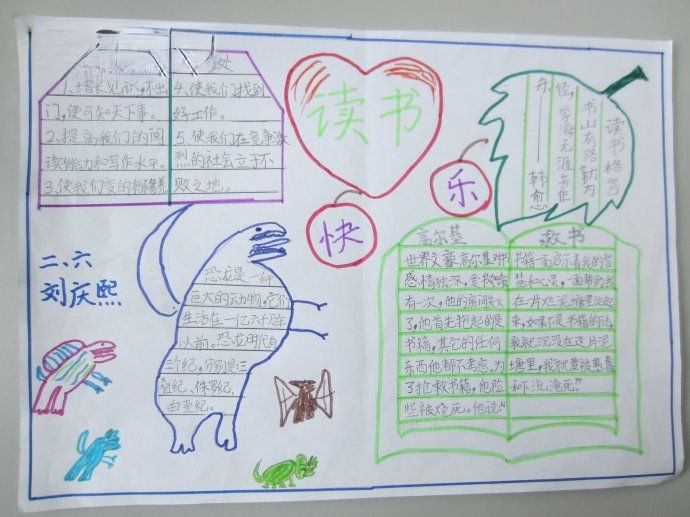 处
1、增长见识,不出
门,便可知天下事。
2、提高我们的阅
读能力和写作水平。
3、使我们变的有修养
4、使我们找到
好工作。
5、使我们在竞争激
烈的社会立于不
败之地。
读书
快
乐
读书格言
书山有路勤为
径,学海无涯苦作
舟。
——韩愈
二、六
刘庆熙
恐龙是一种
巨大的动物,它们
生活在一亿六千万年
以前。恐龙时代有
三个纪,分别是三
叠纪、侏罗纪、
白垩纪。
高尔基
救书
世界文豪高尔基对书
感情独深,爱书如
有一次,他的房间失火
了,他首先抱起的是
书籍,其它的任何
东西他都不考虑。为
了抢救书籍,他险
些被烧死。他说:“
书籍一面启示着我的智
慧和心灵,一面帮助我
在一片烂泥塘里站起
来,如果不是书籍的话,
我就沉没在这片泥
塘里,我就要被愚蠢
和下流淹死”